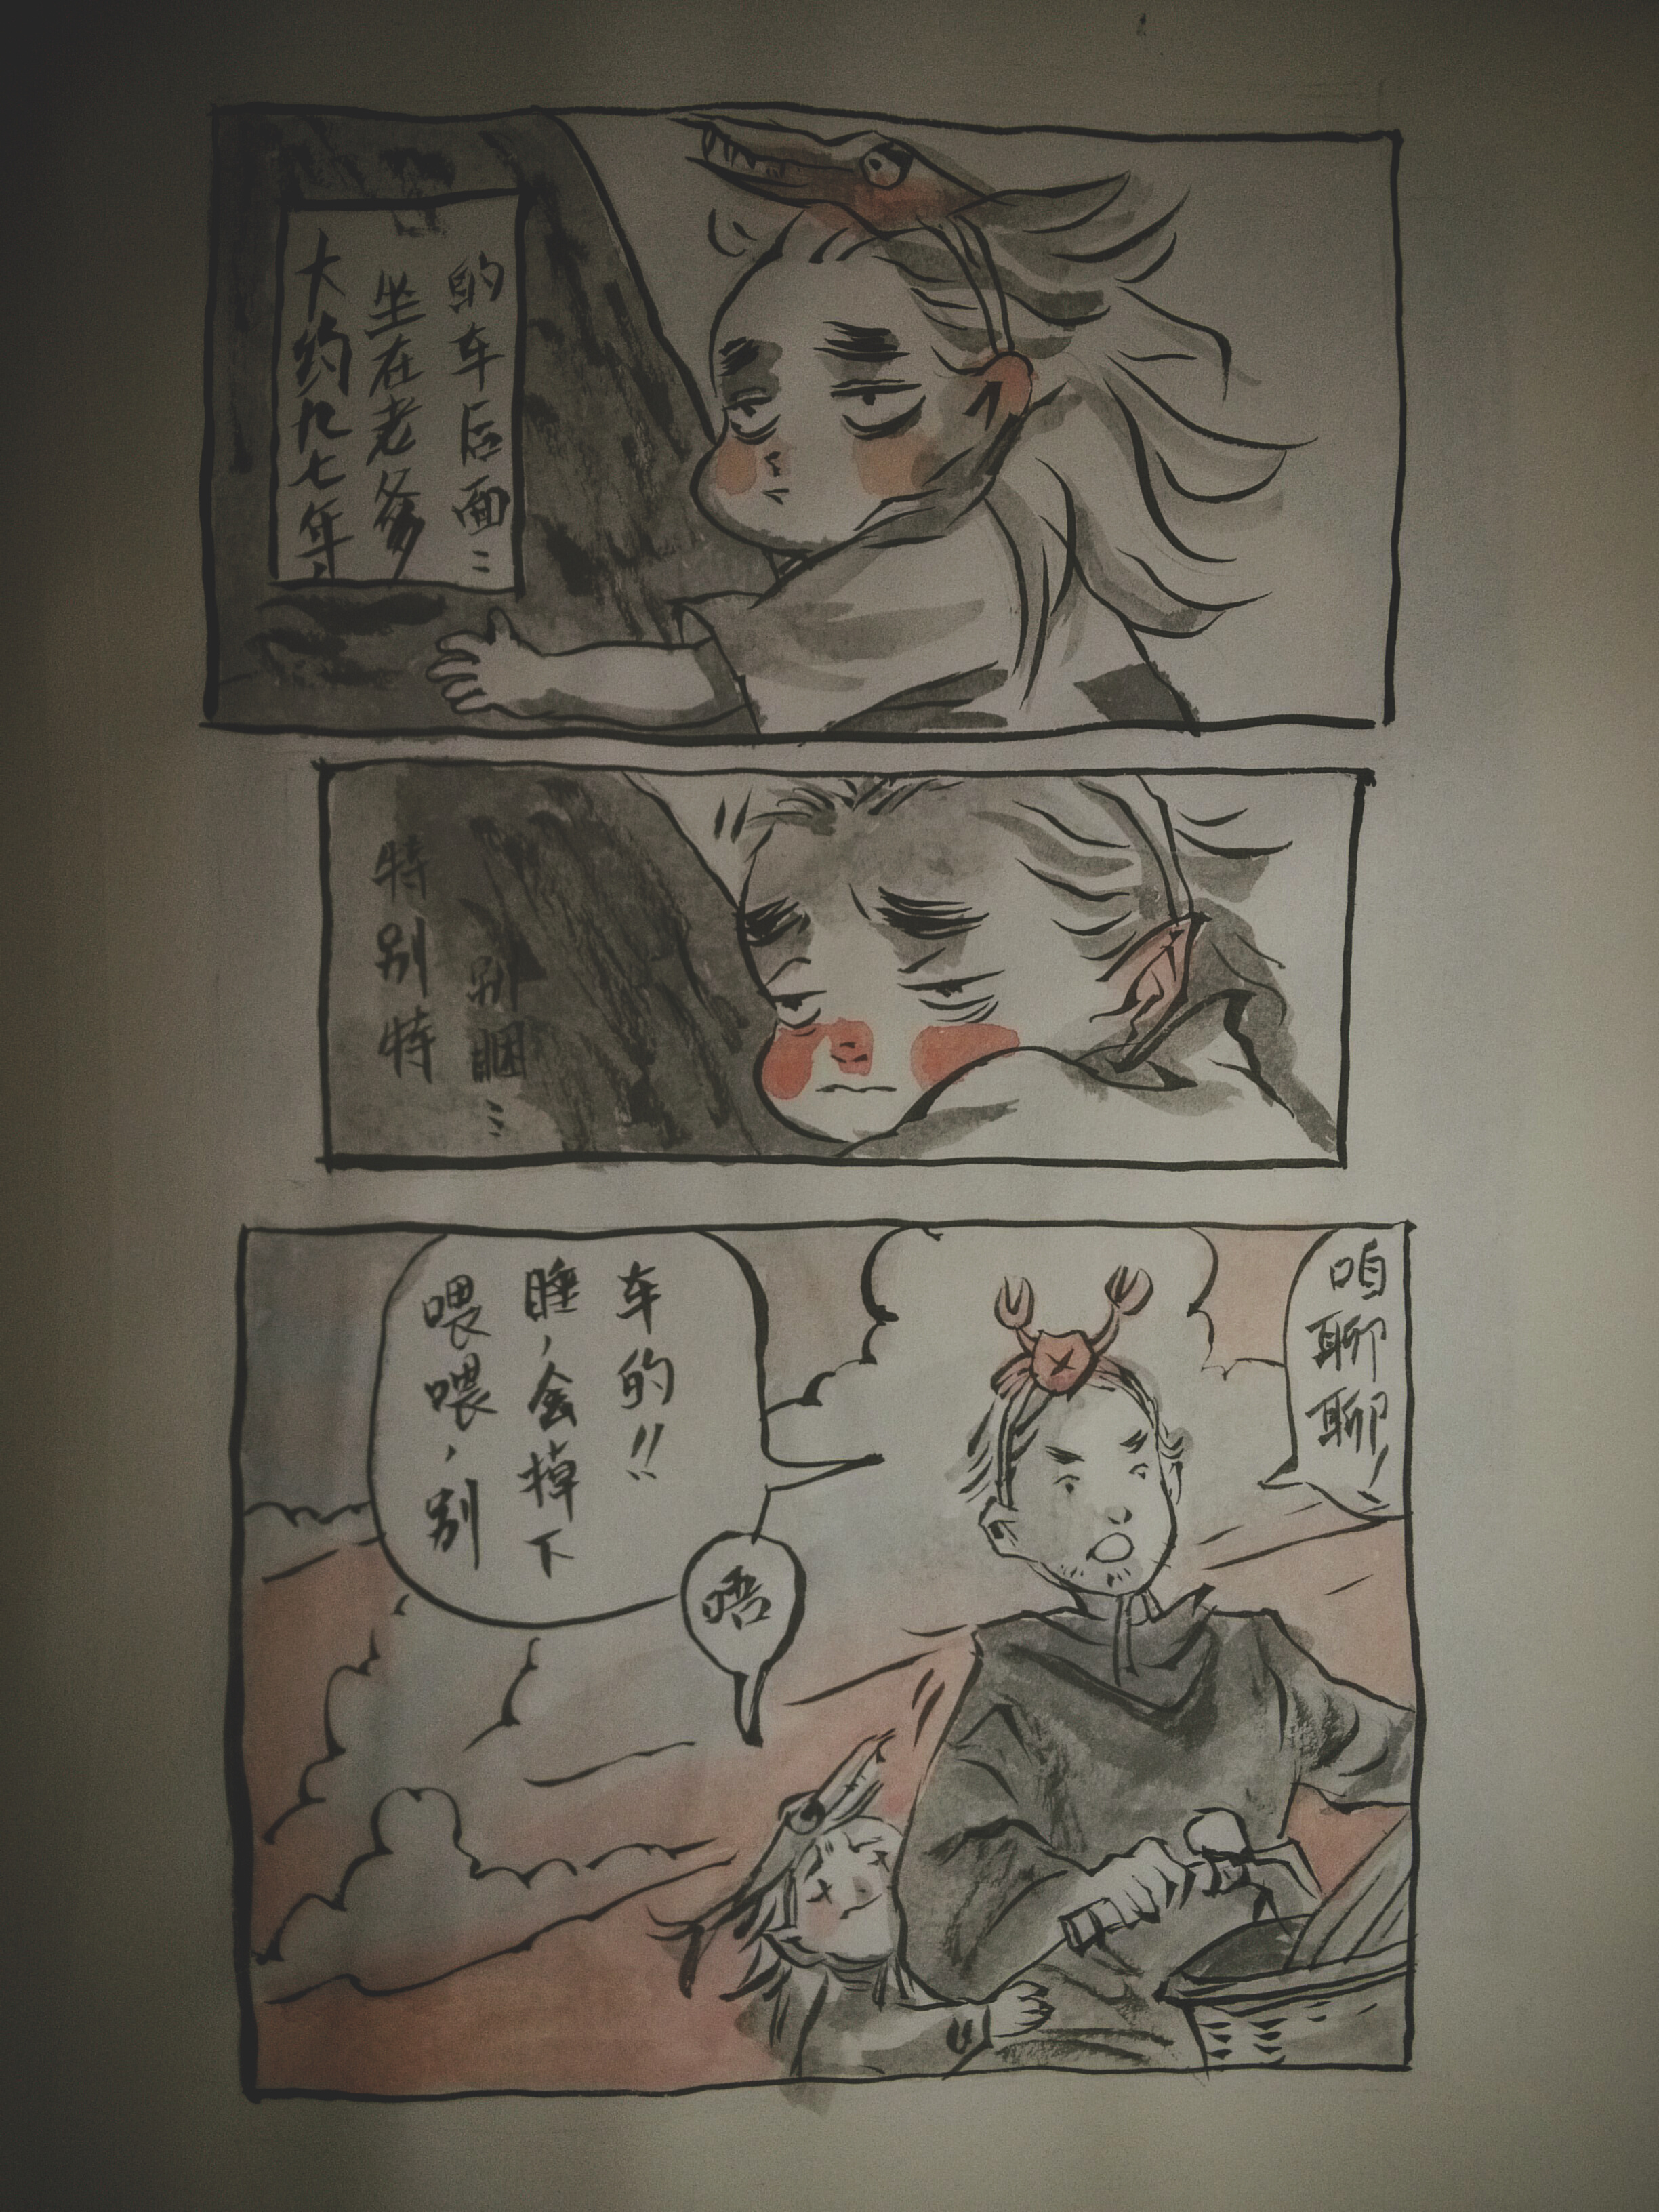 大约九七年，
坐在老爹
的车后面…
特别特
别睏…
喂喂，别
睡，会掉下
车的!!
唔
咱聊聊！